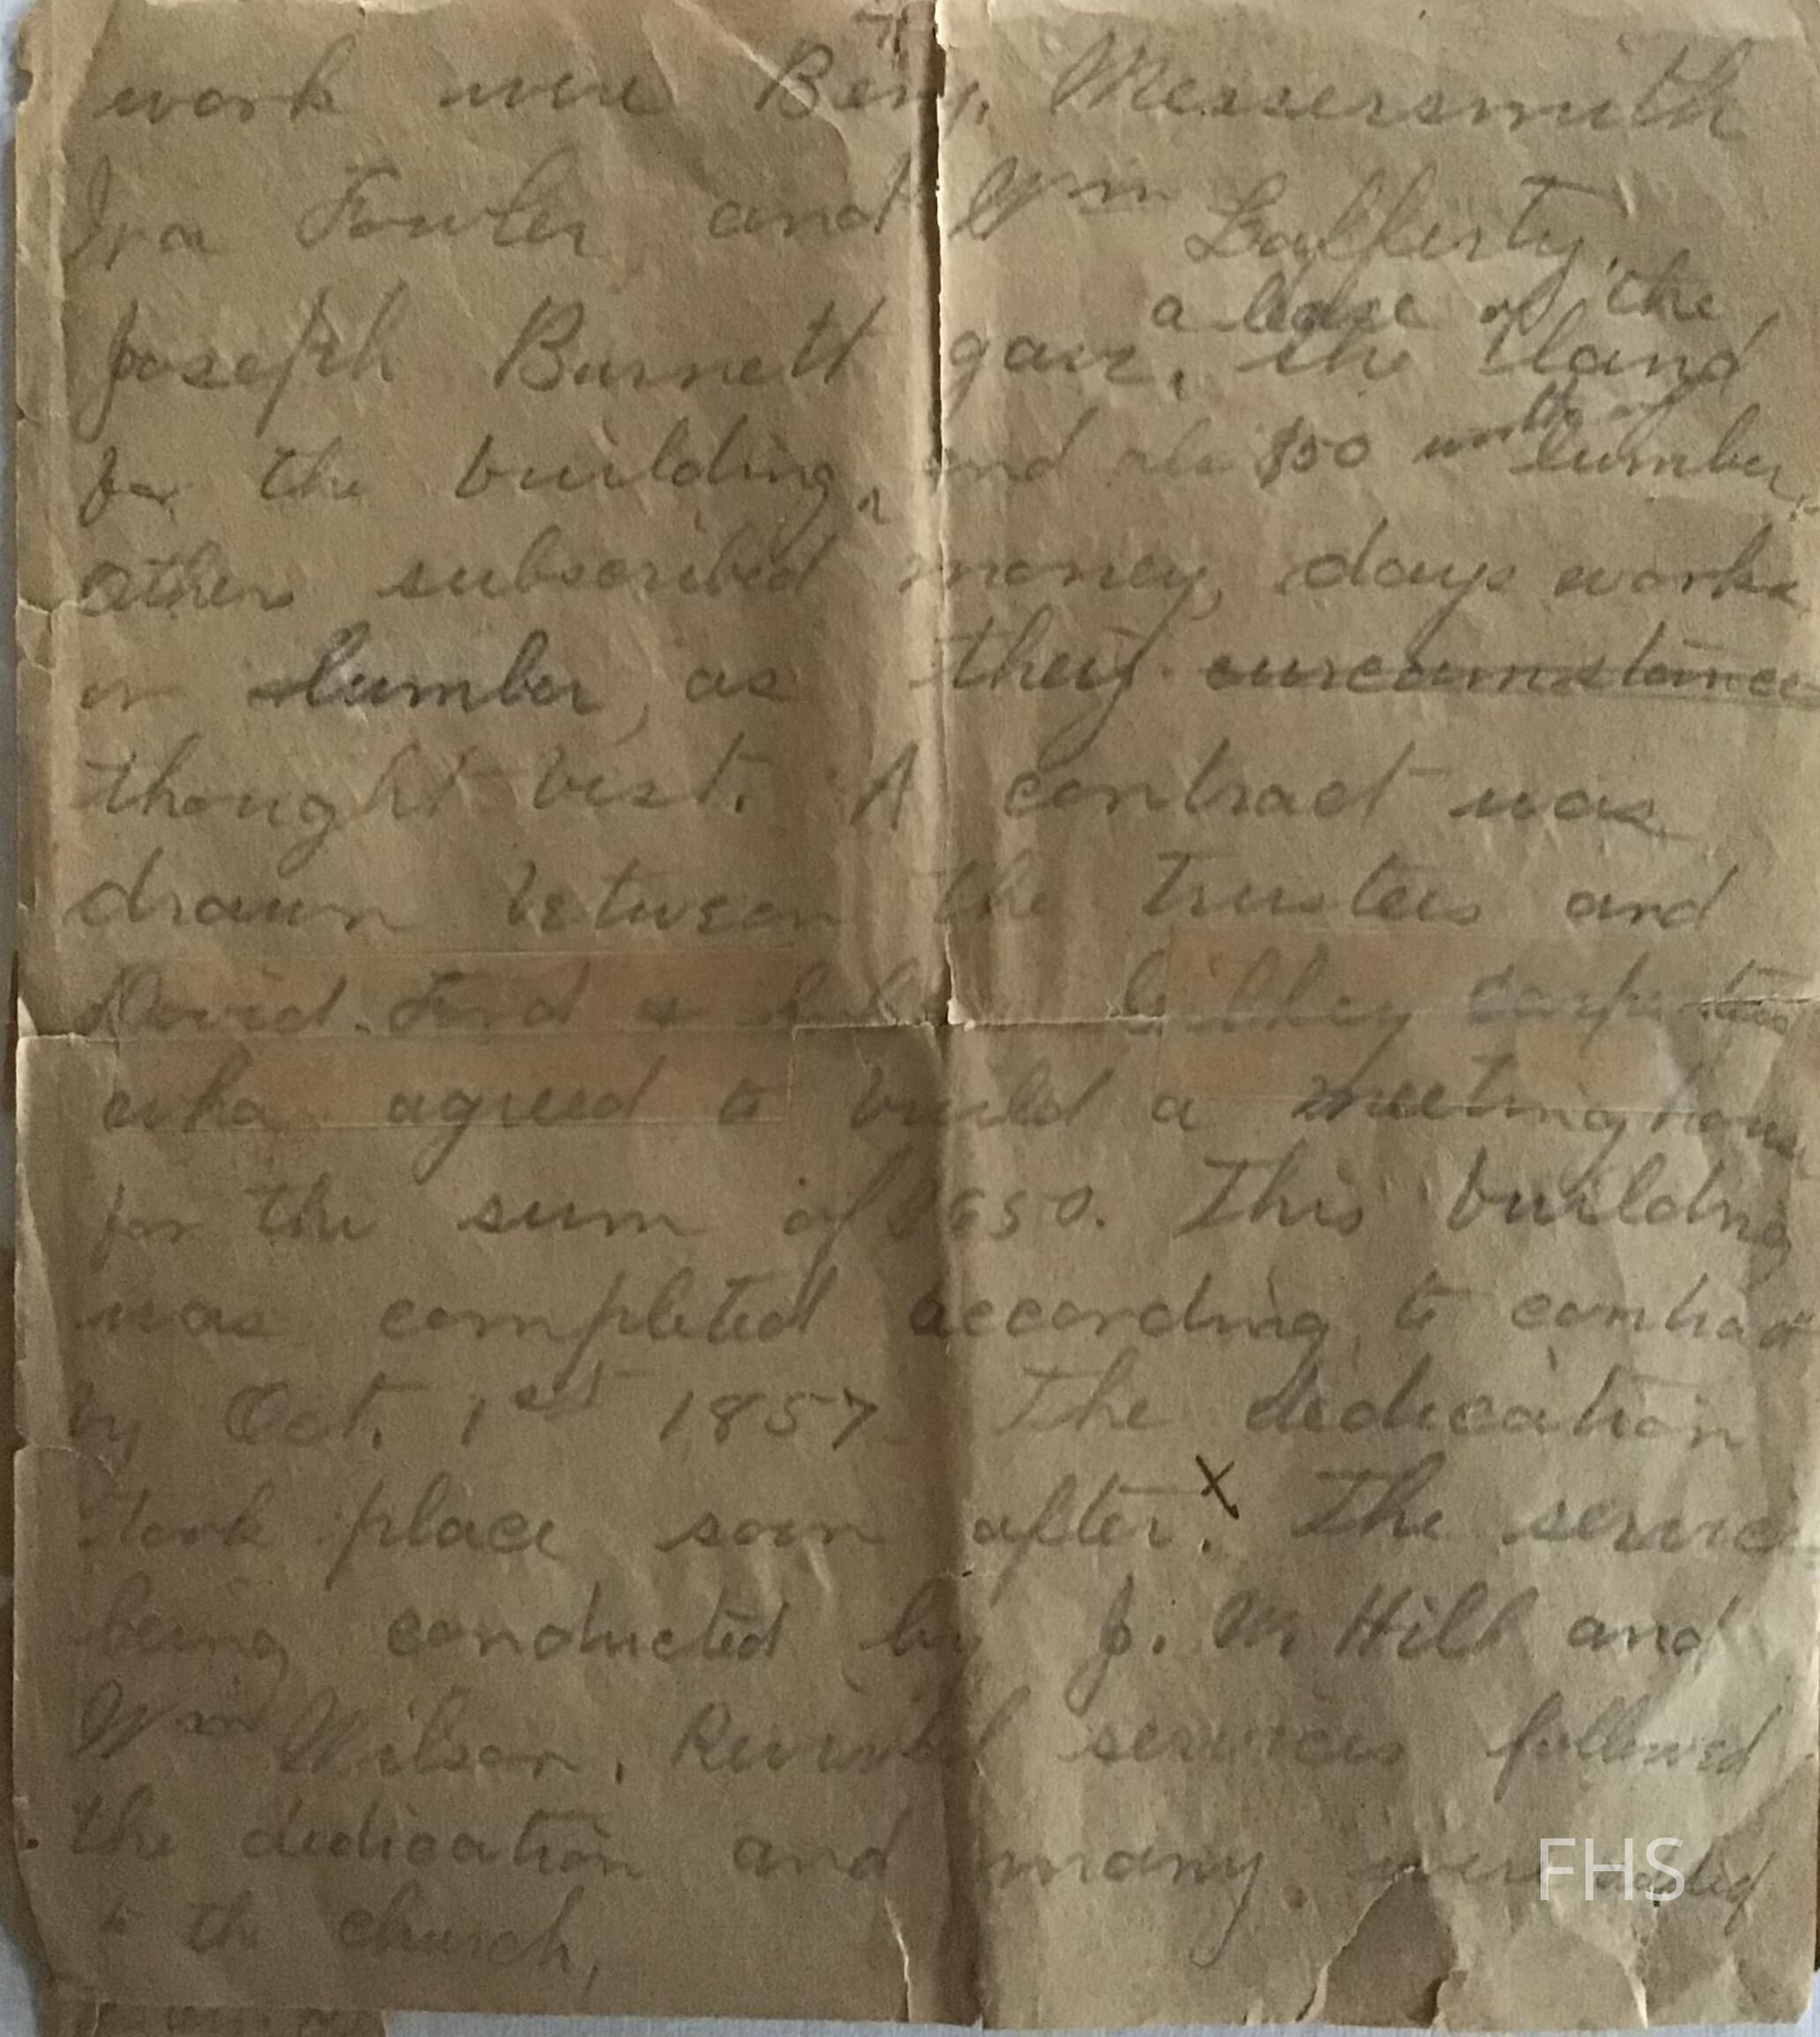 7
work were Benj. Messersmith
Ira Fowler, and Wm Lafferty.
a lease of the
Joseph Burnett gave, the land
for the building, and also $50 worth of lumber,
Others subscribed money, days works
or lumber, as they circumstances
thought best. A contract was
drawn between the Trustees and
David Ford &
who agreed to build a meeting house
for the sum of $650. This building
was completed according to contract
by Oct. 1st 1857. The dedication
took place soon after. X The service
being conducted by J. M Hill and
Wm Wilson. Revival services followed
the dedication and many were added
to the church,
FHS